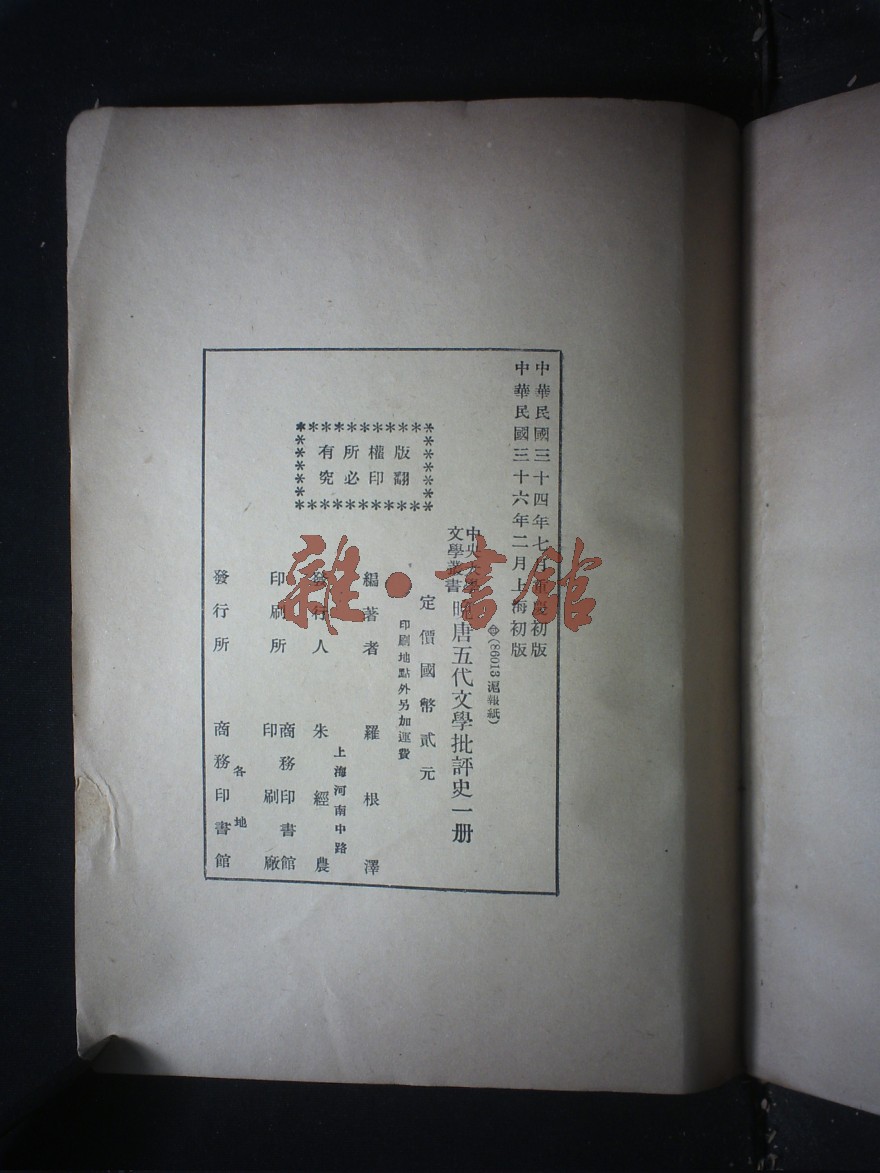 中華民國三十四年七月重慶初版
中華民國三十六年二月上海初版
(86013 滬報紙)
中央大學
文學叢書
晚唐五代文學批評史一册
定價國幣貳元
印刷地點外另加運費
版權所有
翻印必究
編著者 羅根澤
上海河南中路
發行人 朱經農
印刷所 商務印書館
印刷廠
發行所 各地
商務印書館
雜·書館